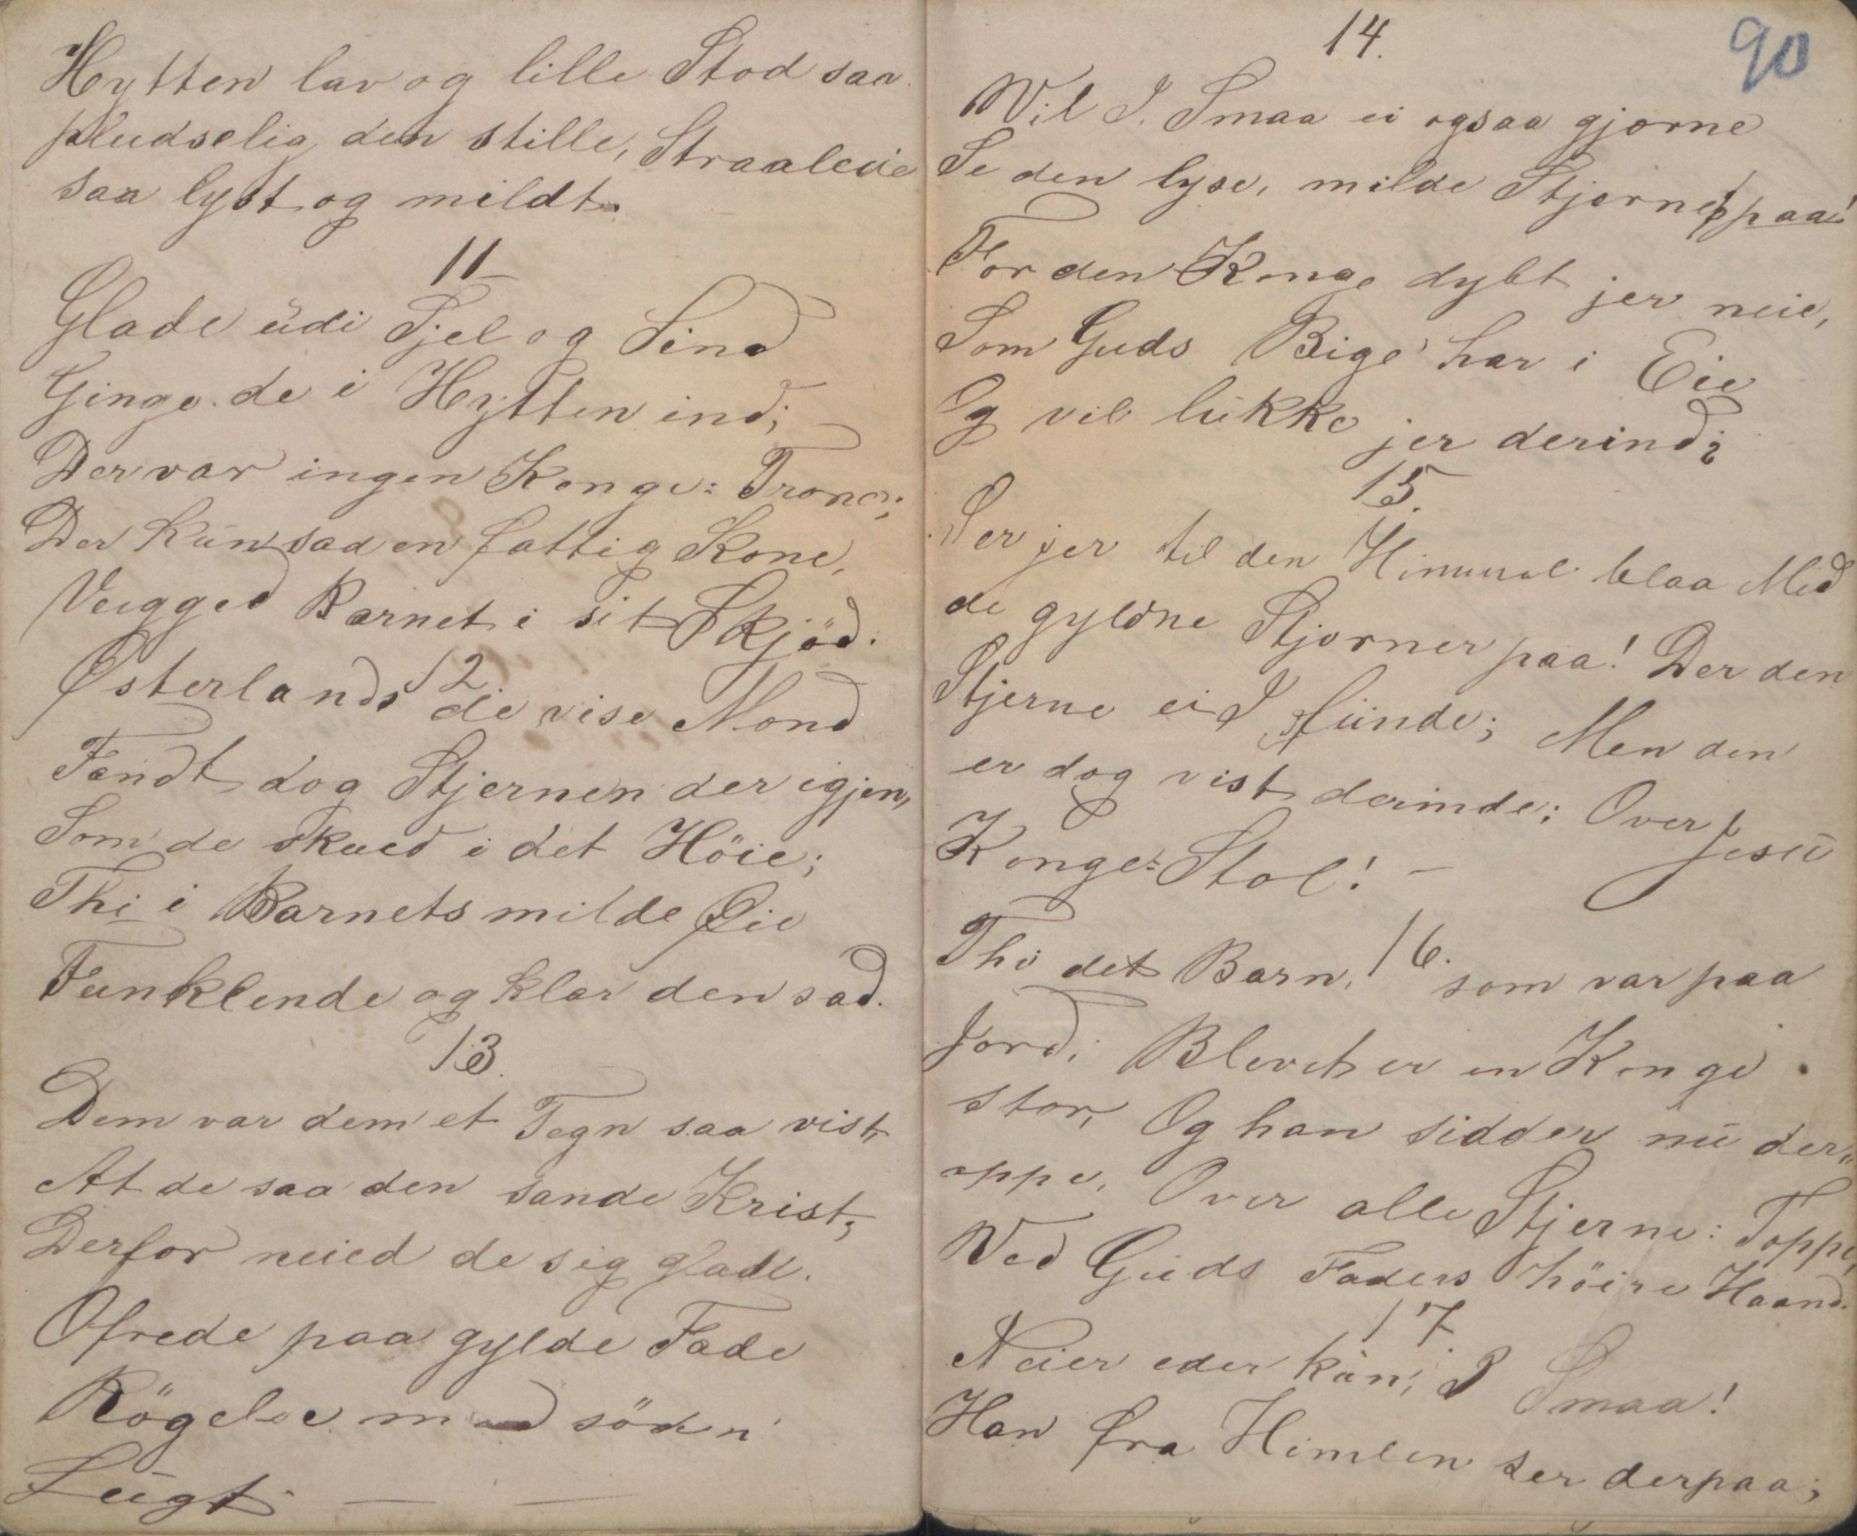 Hytten lav og lille Stod saa
pludselig den stille, Straalede
saa lyst og mildt.
11
Glade üdi Sjel og Sind
Ginge de i Hytten ind;
Der var ingen Konge: Trone;
Der kün sad en fattig Kone,
Vugged Barnet i sit Skjöd.
12
Østerlands de vise Mend
Fandt dog Stjernen der igjen,
Som de skued i det Höie;
Thi i Barnets milde Øie
Funklende og klar den sad.
13.
Dem var dem et Tegn saa vist
At de saa den sande Krist;
Derfor neied de sig glade.
Ofrede paa gylde Fade
Rögelse med söden
Lügt. — —
90
14.
Wil I. Smaa ei ogsaa gjerne
Se den lyse, milde Stjerne
paa!
For den Konge dybt jer neie,
Som Guds Rige har i Eie
Og vil lükke jer derind?
15.
Ser jer til den Himmel blaa Med
de gyldne Stjerner paa! Der den
Stjerne ei I fünde; Men den
er dog vist derinde; Over Jesü
Konge: Stol! —
16.
Thi det Barn, som var paa
Jord, Blevet er en Konge
stor, Og han sidder nü der„
oppe, Over alle Stjerne: Toppe,
Ved Guds Faders höire Haand.
17
Neier eder kün, I Smaa!
Han fra Himlen ser derpaa;